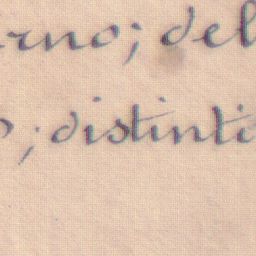 erno; del
o; distinti